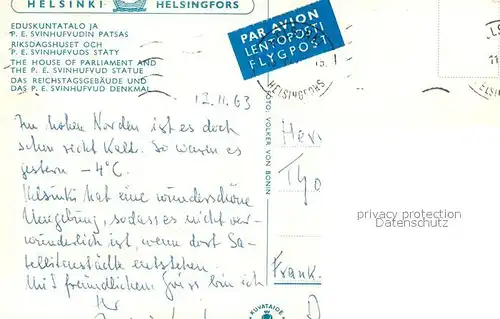 HELSINKI HELSINGFORS
EDUSKUNTATALO JA
P. E. SVINHUFVUDIN PATSAS
RIKSDAGSHUSET OCH
P. E. SVINHUFVUDS STATY
THE HOUSE OF PARLIAMENT AND
THE P. E. SVINHUFVUD STATUE
DAS REICHSTAGSGEBÄUDE UND
DAS P. E. SVINHUFVUD DENKMAL
PAR AVION
LENTOPOSTI
FLYGPOST
HELSINGFORS
12.11.63
Im hohen Norden ist es doch
schon recht kalt. So waren es
gestern -4°C.
Helsinki hat eine wunderschöne
Umgebung, sodass es nicht ver-
wunderlich ist, wenn dort Sa-
tellitenstädte entstehen.
Mit freundlichem Gruss bin ich
Ihr
FOTO. VOLKER VON BONIN
Herr
Frank.
privacy protection
Datenschutz
KUVATAIDE